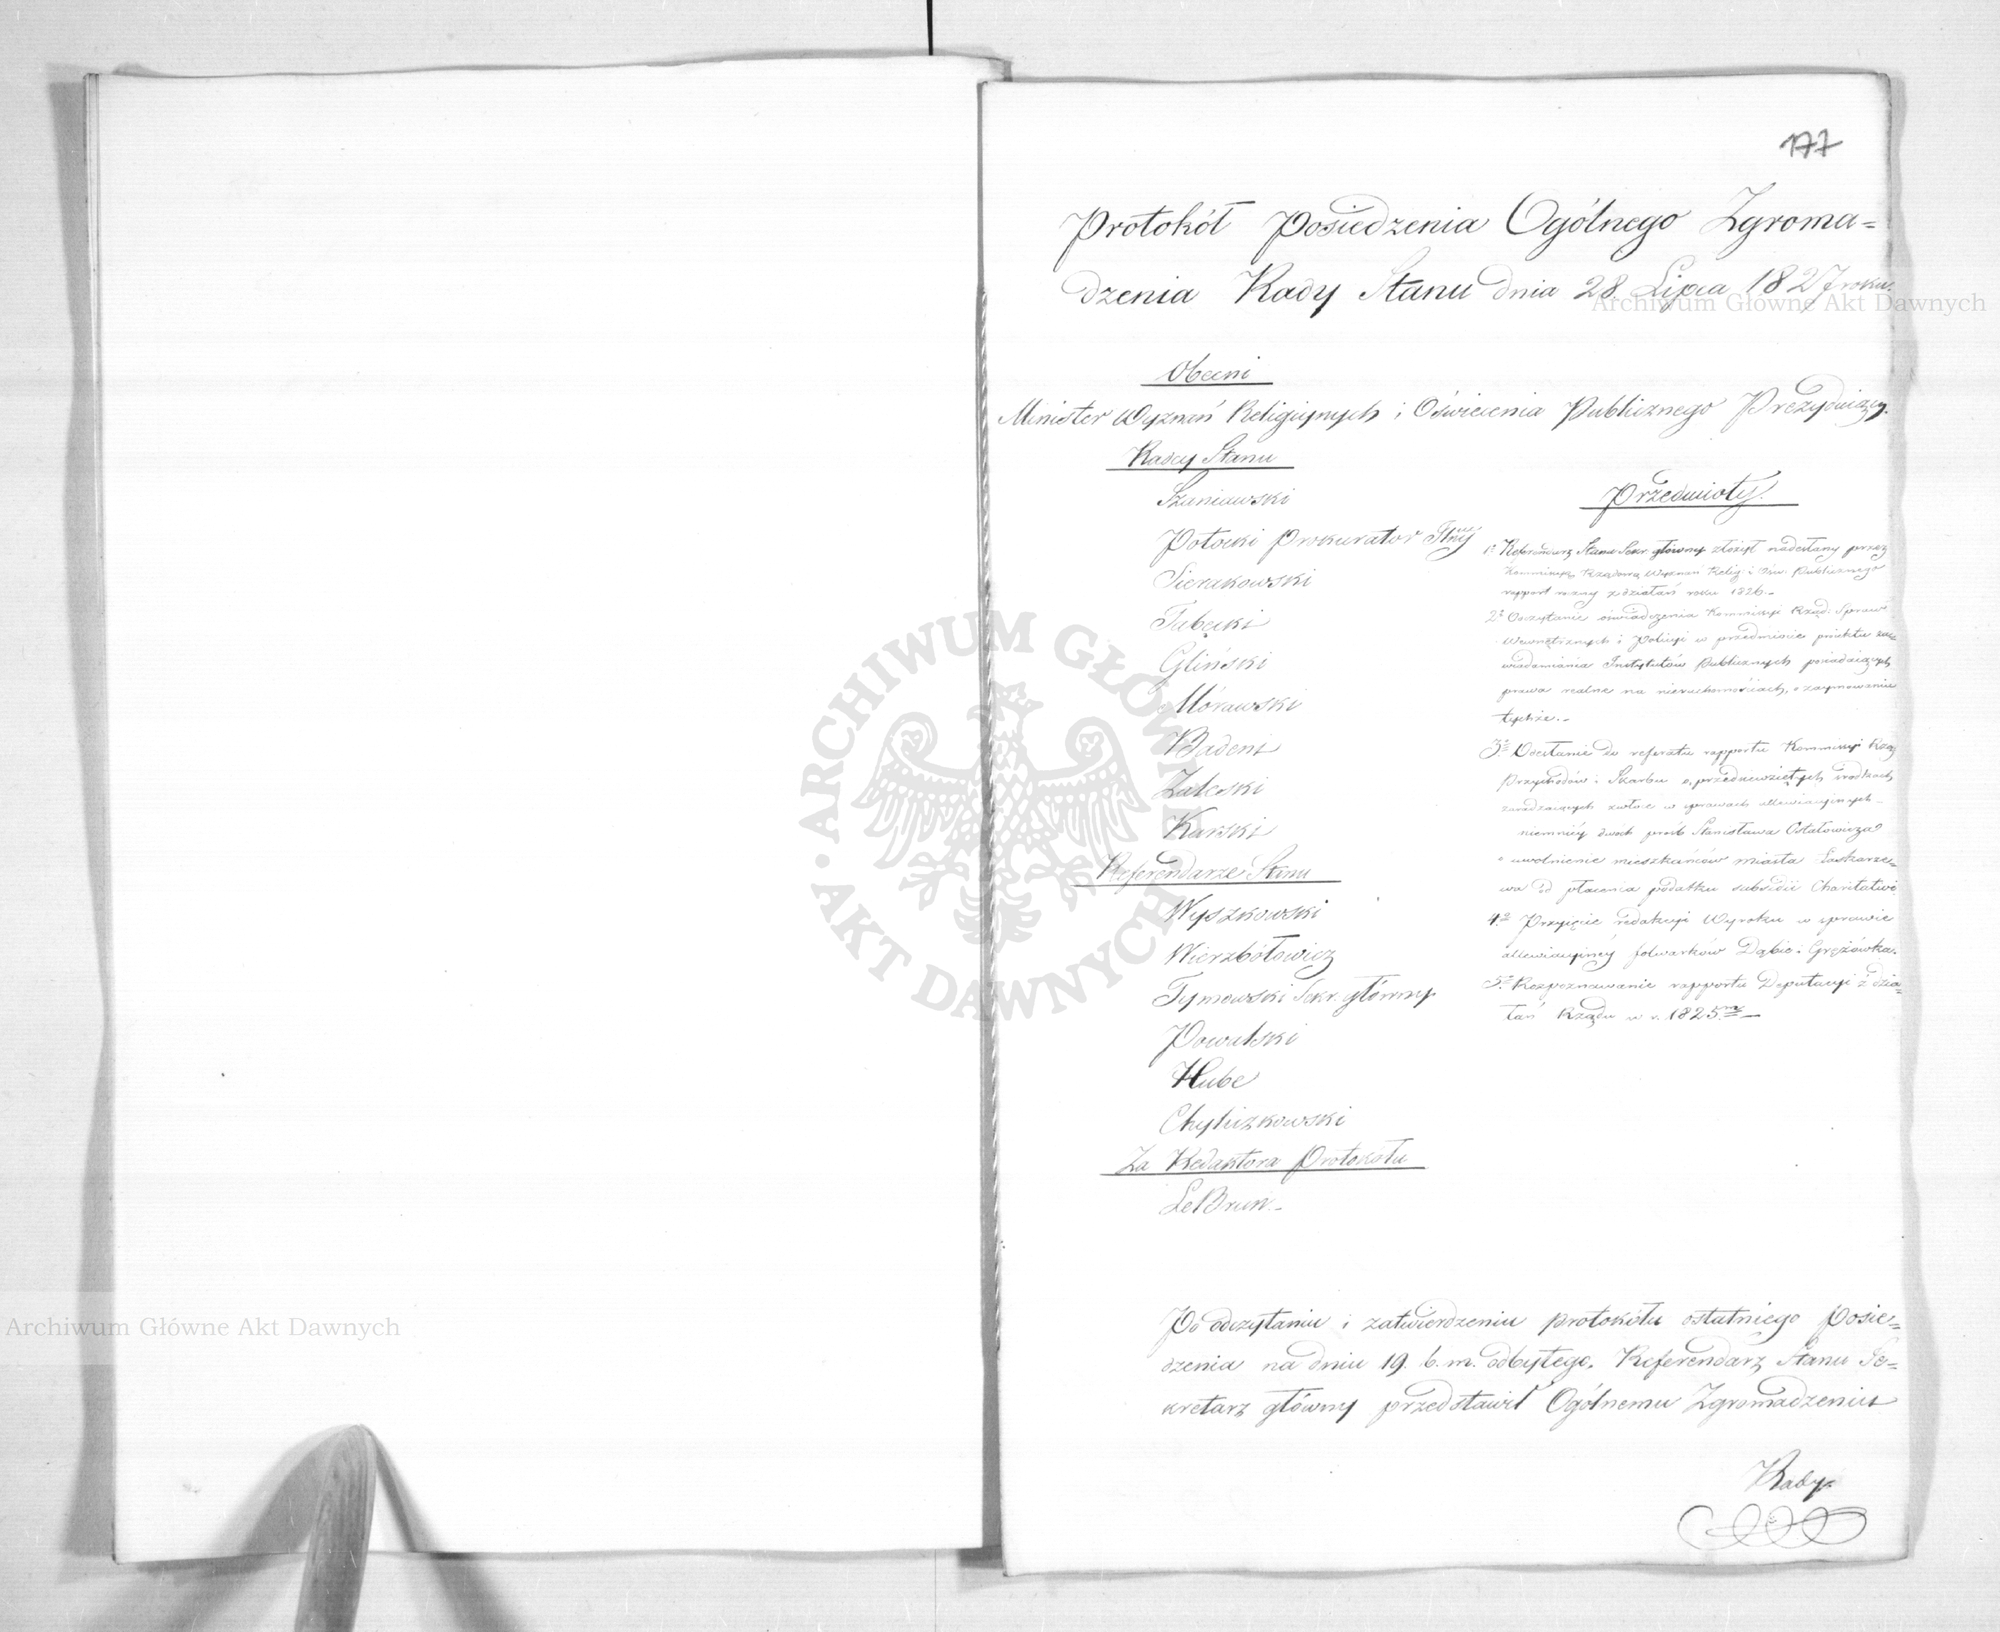 177
Protokół Posiedzenia Ogólnego Zgroma=
dzenia Rady Stanu dnia 28. Lipca 1827 roku.
Obecni
Minister Wyznań Religijnych i Oświecenia Publicznego Prezydujący.
Radcy Stanu
Szaniawski
Potocki Prokurator Glny
Sierakowski
Tabęcki
Gliński
Morawski
Badeni
Zaleski
Karski
Referendarze Stanu
Wyszkowski
Wierzbołowicz
Tymowski Sekr. główny
Powalski
Hube
Chyliczkowski
Za Redaktora Protokołu
Le Brun.
Przedmioty.
1e Referendarz Stanu Sekr. główny złożył nadesłany przez
Kommissyą Rządową Wyznań Relig: i Ośw. Publicznego
rapport roczny z działań roku 1826.
2e Odczytanie oświadczenia Kommissyi Rząd: Spraw
Wewnętrznych i Policyi w przedmiocie projektu zaw=
wiadamiania Instytutów Publicznych posiadających
prawa realne na nieruchomościach, o zajmowaniu
tychże.
3e Odesłanie do referatu rapportu Kommissyi Rzą
Przychodów i Skarbu o przedsięwziętych środkach
zaradzających zwłoce w sprawach allewiacyjnych
niemniéy dwóch prośb Stanisława Ostałowicza
o uwolnienie mieszkańców miasta Łaskarze=
wa od płacenia podatku subsidii Charitativi
4e Przyjęcie redakcyi Wyroku w sprawie
allewiacyjnéy folwarków Dąbie i Grężówka.
5e Rozpoznawanie rapportu Deputacyi z dzia=
łań Rządu w r. 1825m
Po odczytaniu i zatwierdzeniu protokółu ostatniego Posie=
dzenia na dniu 19. b. m. odbytego, Referendarz Stanu Se=
kretarz główny przedstawił Ogólnemu Zgromadzeniu
Archiwum Główne Akt Dawnych
Archiwum Główne Akt Dawnych
ARCHIWUM GŁÓWNE · AKT DAWNYCH ·